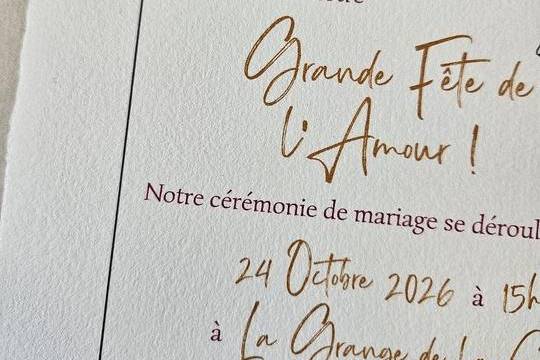 Grande Fête de
l'Amour !
Notre cérémonie de mariage se déroul
24 Octobre 2026 à 15h
à La Grange de La